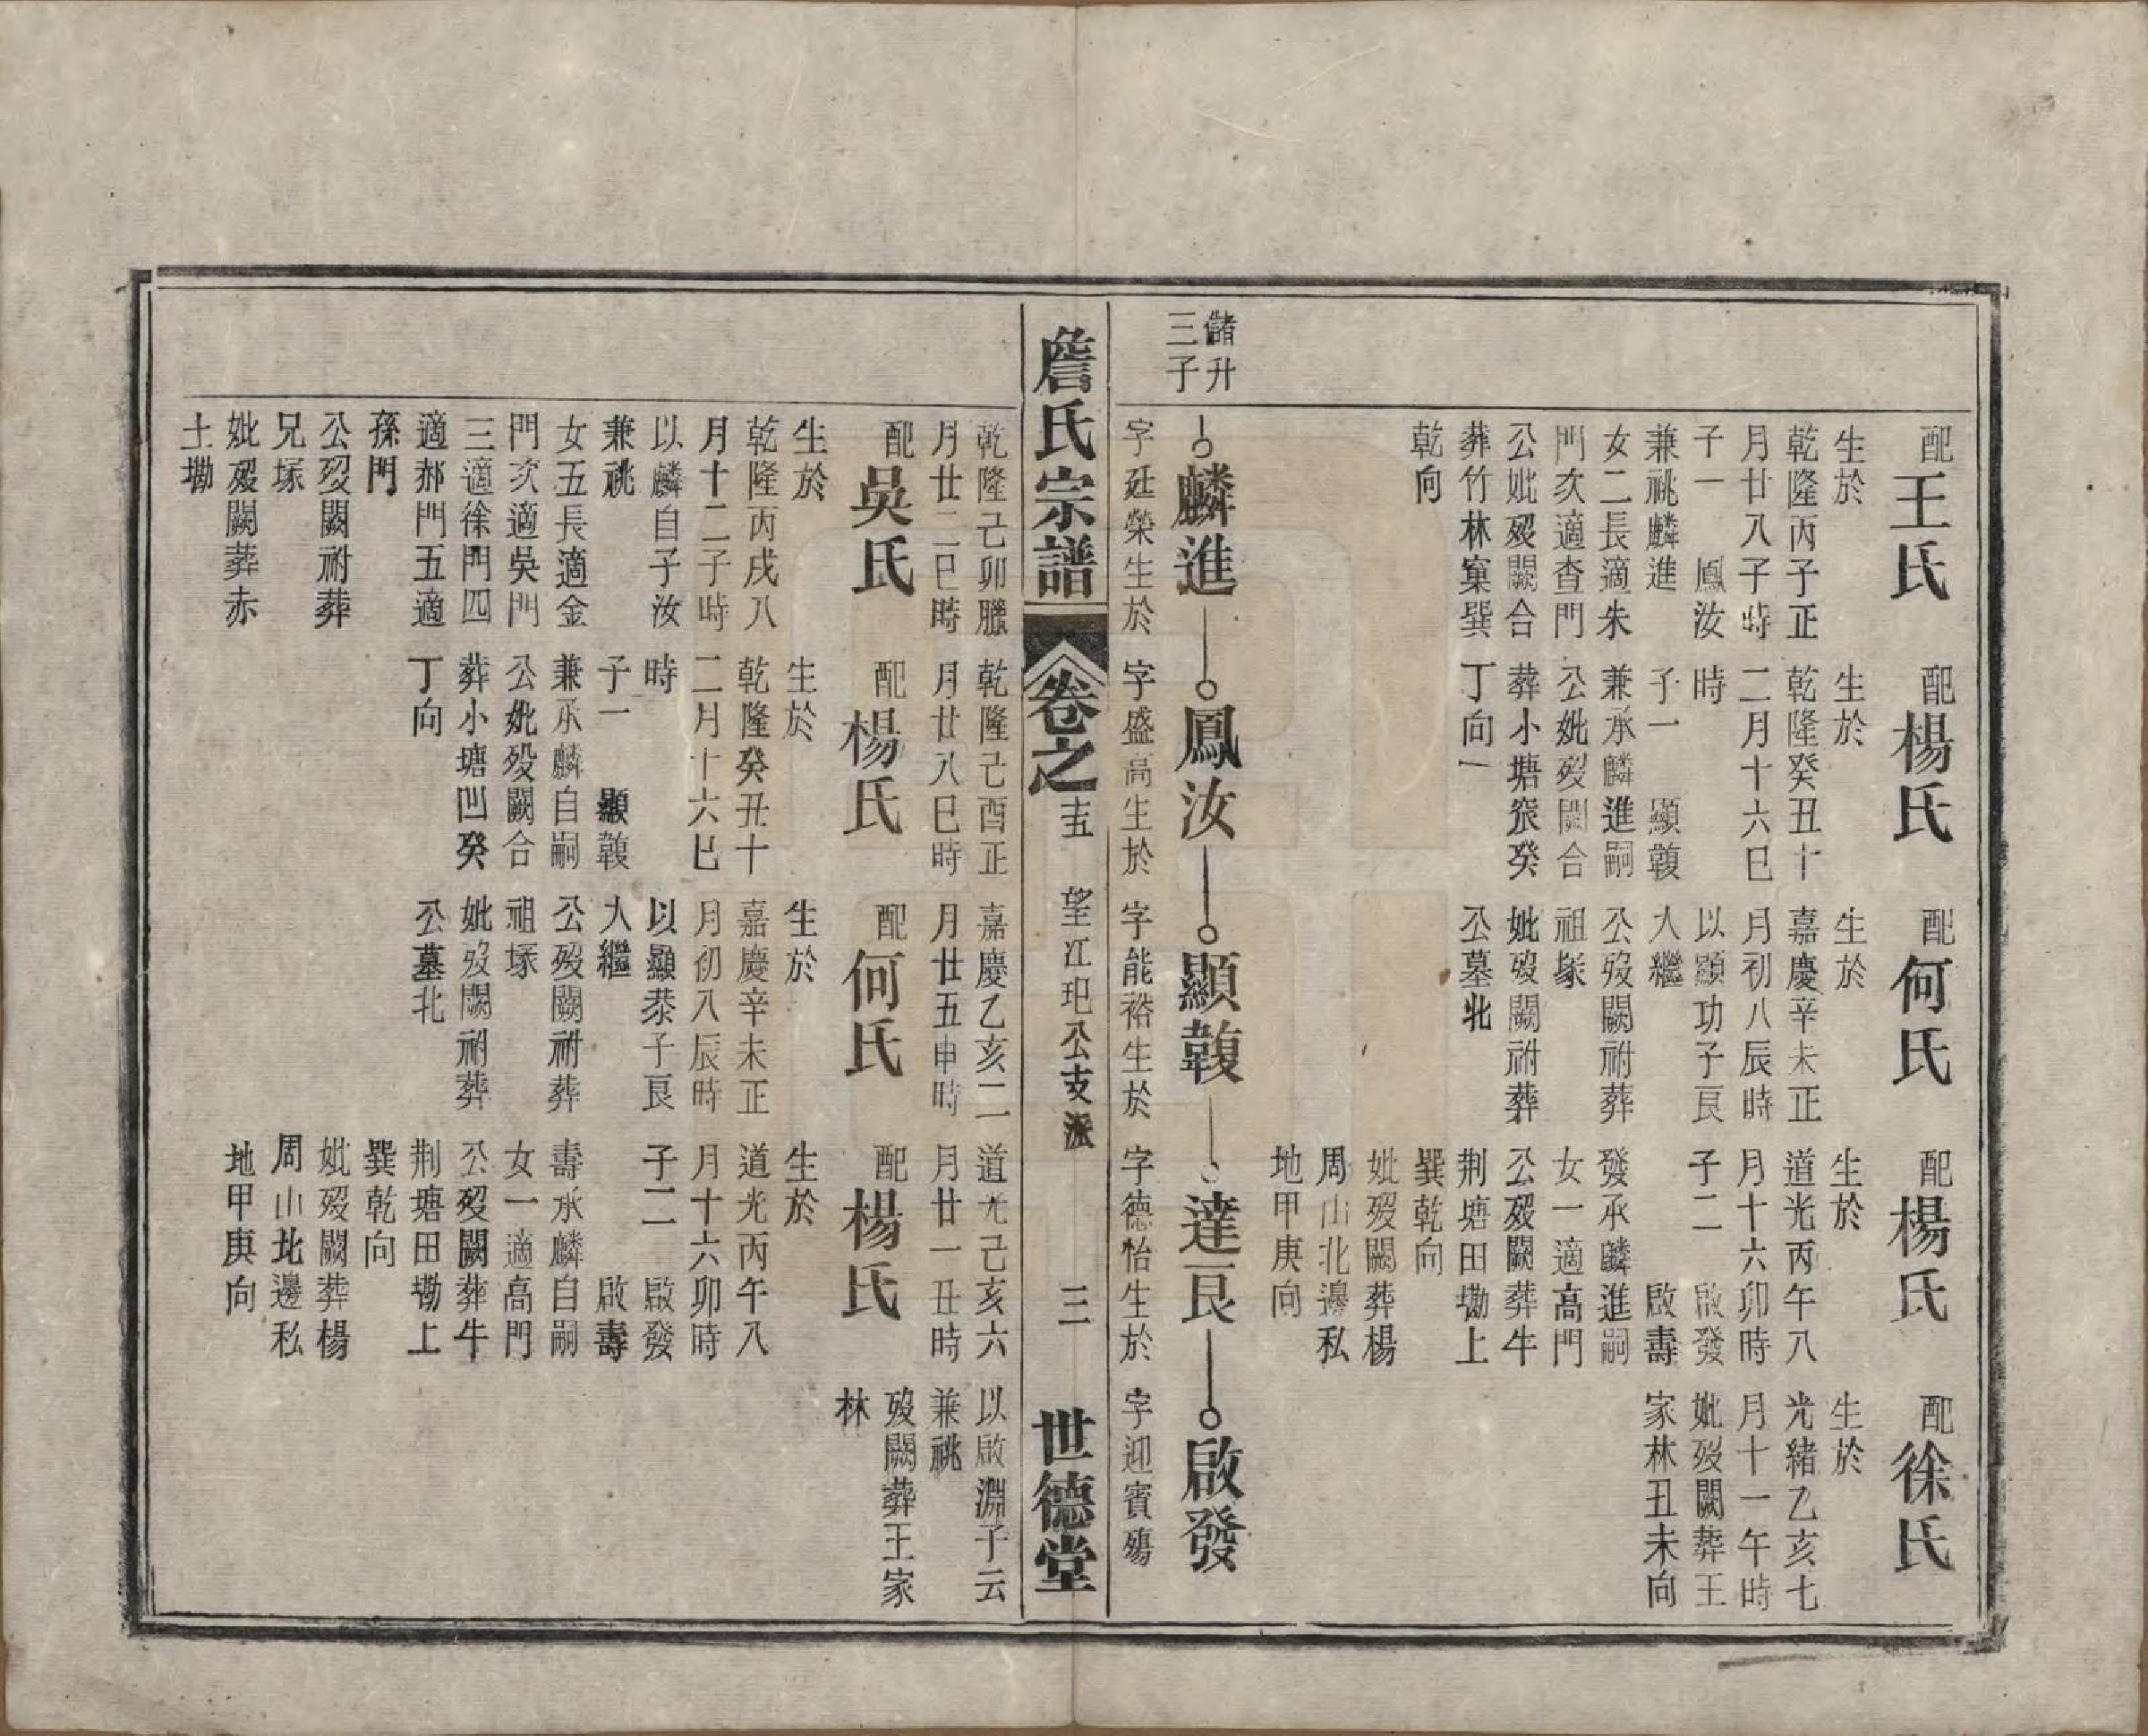 配王氏
生於
乾隆丙子正
月廿八子時
子一 鳳汝
兼祧麟進
女二長適朱
門次適查門
公妣歿闕合
葬竹林窠巽
乾向
配楊氏
生於
乾隆癸丑十
二月十六巳
時
子一 顯𩏂
兼承麟進嗣
公妣歿闕合
葬小塘㘭癸
丁向
配何氏
生於
嘉慶辛未正
月初八辰時
以顯功子艮
入繼
公歿闕祔葬
祖塚
妣歿闕祔葬
公墓北
配楊氏
生於
道光丙午八
月十六卯時
子二 啟發
啟壽
發承麟進嗣
女一適高門
公歿闕葬牛
荆塘田墈上
巽乾向
妣歿闕葬楊
周山北邊私
地甲庚向
配徐氏
生於
光緒乙亥七
月十一午時
妣歿闕葬王
家林丑未向
儲升
三子
麟進
鳳汝
顯𩏂
達艮
啟發
字廷榮生於
字盛高生於
字能裕生於
字德怡生於
字迎賓殤
詹氏宗譜
卷之
十五
望江玘公支派
三
世德堂
乾隆己卯臘
月廿二巳時
配吳氏
生於
乾隆丙戌八
月十二子時
以麟自子汝
兼祧
女五長適金
門次適吳門
三適徐門四
適郝門五適
孫門
公歿闕祔葬
兄塚
妣歿闕葬赤
土墈
乾隆己酉正
月廿八巳時
配楊氏
生於
乾隆癸丑十
二月十六巳
時
子一 顯𩏂
兼承麟自嗣
公妣歿闕合
葬小塘凹癸
丁向
嘉慶乙亥二
月廿五申時
配何氏
生於
嘉慶辛未正
月初八辰時
以顯恭子艮
入繼
公歿闕祔葬
祖塚
妣歿闕祔葬
公墓北
道光己亥六
月廿一丑時
配楊氏
生於
道光丙午八
月十六卯時
子二 啟發
啟壽
壽承麟自嗣
女一適高門
公歿闕葬牛
荆塘田墈上
巽乾向
妣歿闕葬楊
周山北邊私
地甲庚向
以啟淵子云
兼祧
歿闕葬王家
林